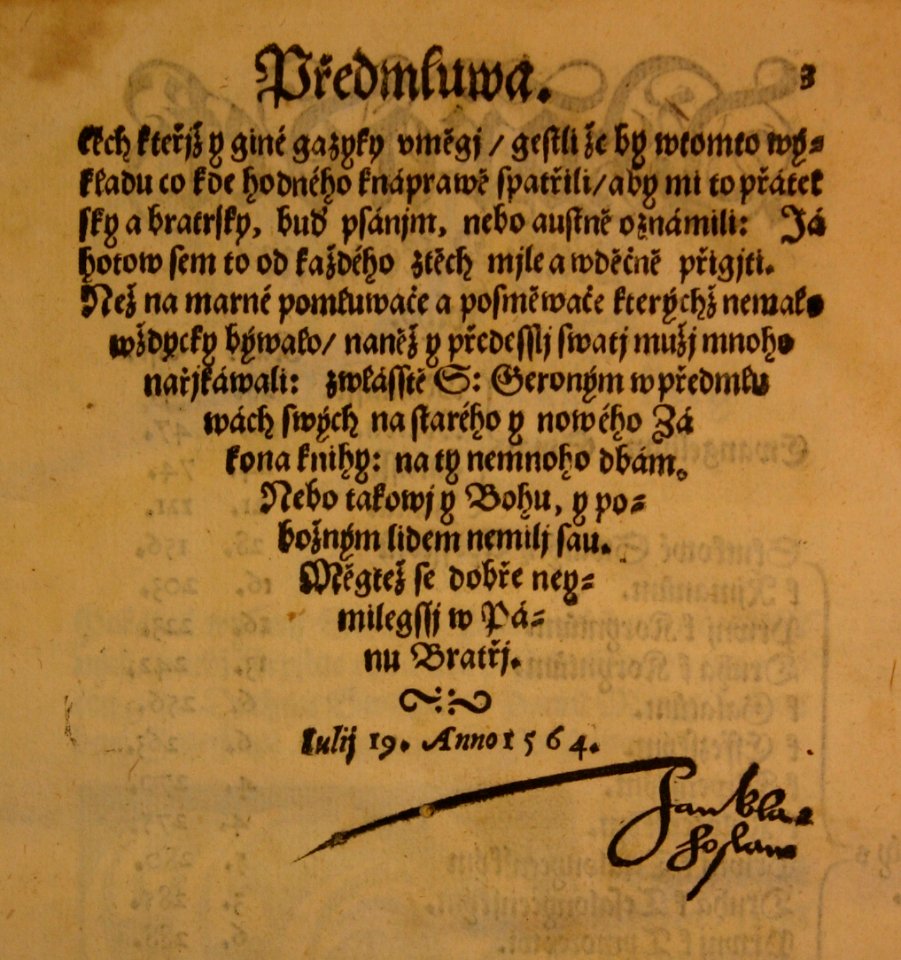 Předmluwa. 3
těch kteřjž y giné gazyky vměgj / gestli že by wtomto wý-
kladu co kde hodného knáprawě spatřili / aby mi to přátel
sky a bratrsky, buď psánjm, nebo austně oznámili: Já
hotow sem to od každého ztěch mjle a wděčně přigjti.
Než na marné pomluwače a posměwače kterýchž nemalo
wždycky býwalo / naněž y předesslj swatj mužj mnoho
nařjkáwali: zwlásstě S: Geroným w předmlu
wách swých na starého y nowého Zá
kona knihy: na ty nemnoho dbám.
Nebo takowj y Bohu, y po-
božným lidem nemilj sau.
Měgtež se dobře ney-
milegssj w Pá-
nu Bratřj.
Iulij 19. Anno 1564.
Jan Bla-
hoslaw